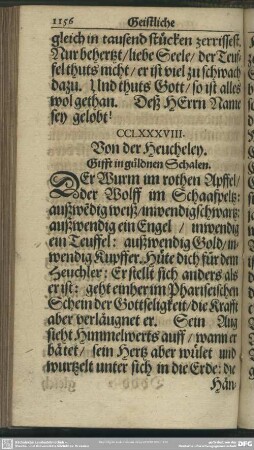 1156 Geistliche
gleich in tausend stücken zerrissest.
Nur behertzt/ liebe Seele/ der Teu-
fel thuts nicht/ er ist viel zu schwach
dazu. Und thuts Gott/ so ist alles
wol gethan. Deß HErrn Name
sey gelobt!
CCLXXXVIII.
Von der Heucheley.
Gifft in güldnen Schalen.
DEr Wurm im rothen Apffel/
der Wolff im Schaafpeltz:
außwēdig weiß/ inwendig schwartz:
außwendig ein Engel / inwendig
ein Teuffel: außwendig Gold/ in-
wendig Kupffer. Hüte dich für dem
Heuchler: Er stellt sich anders als
er ist: geht einher im Phariseischen
Schein der Gottseligkeit/ die Krafft
aber verläugnet er. Sein Aug
sieht Himmelwerts auff/ wann er
bätet/ sein Hertz aber wület und
wurtzelt unter sich in die Erde: die
Hän-